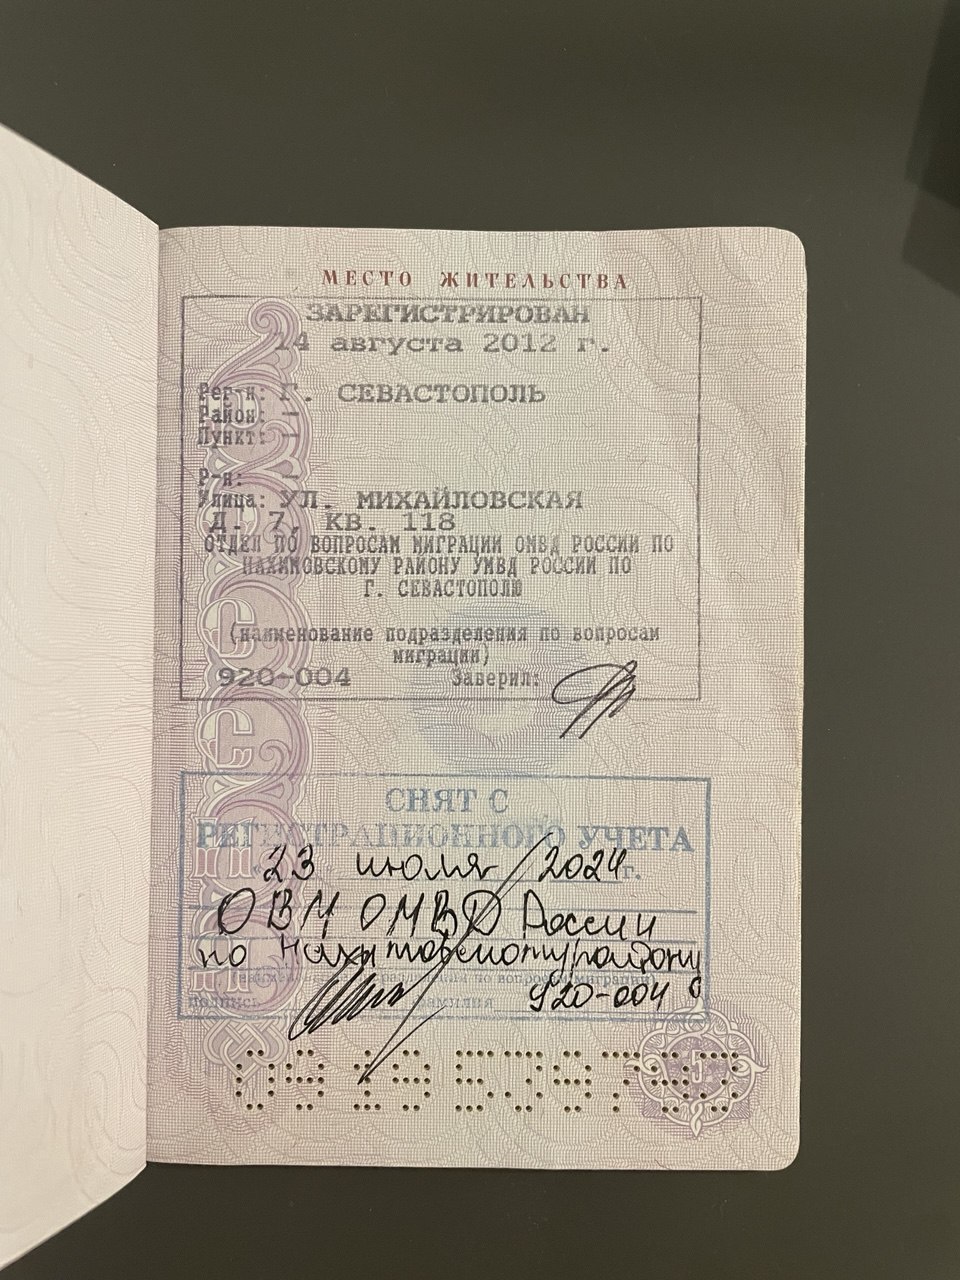 МЕСТО ЖИТЕЛЬСТВА
ЗАРЕГИСТРИРОВАН
14 августа 2012 г.
Рег-н: Г. СЕВАСТОПОЛЬ
Район: —
Пункт: —
Р-н: —
Улица: УЛ. МИХАЙЛОВСКАЯ
Д. 7, КВ. 118
ОТДЕЛ ПО ВОПРОСАМ МИГРАЦИИ ОМВД РОССИИ ПО
НАХИМОВСКОМУ РАЙОНУ УМВД РОССИИ ПО
Г. СЕВАСТОПОЛЮ
(наименование подразделения по вопросам
миграции)
920-004 Заверил:
СНЯТ С
РЕГИСТРАЦИОННОГО УЧЕТА
23 июля 2024 г.
ОВМ ОМВД России
по Нахимовскому району
подпись фамилия 920-004
5
09 19 539793